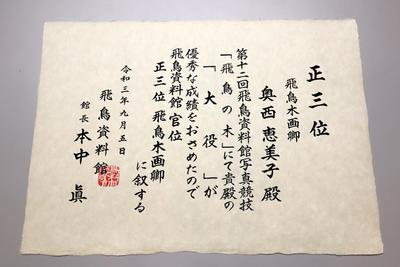 正三位
飛鳥木画卿
奥西恵美子殿
第十二回飛鳥資料館写真競技
「飛鳥の木」にて貴殿の
「大役」が
優秀な成績をおさめたので
飛鳥資料館官位
正三位 飛鳥木画卿
に叙する
令和三年九月五日
飛鳥資料館
館長 本中眞